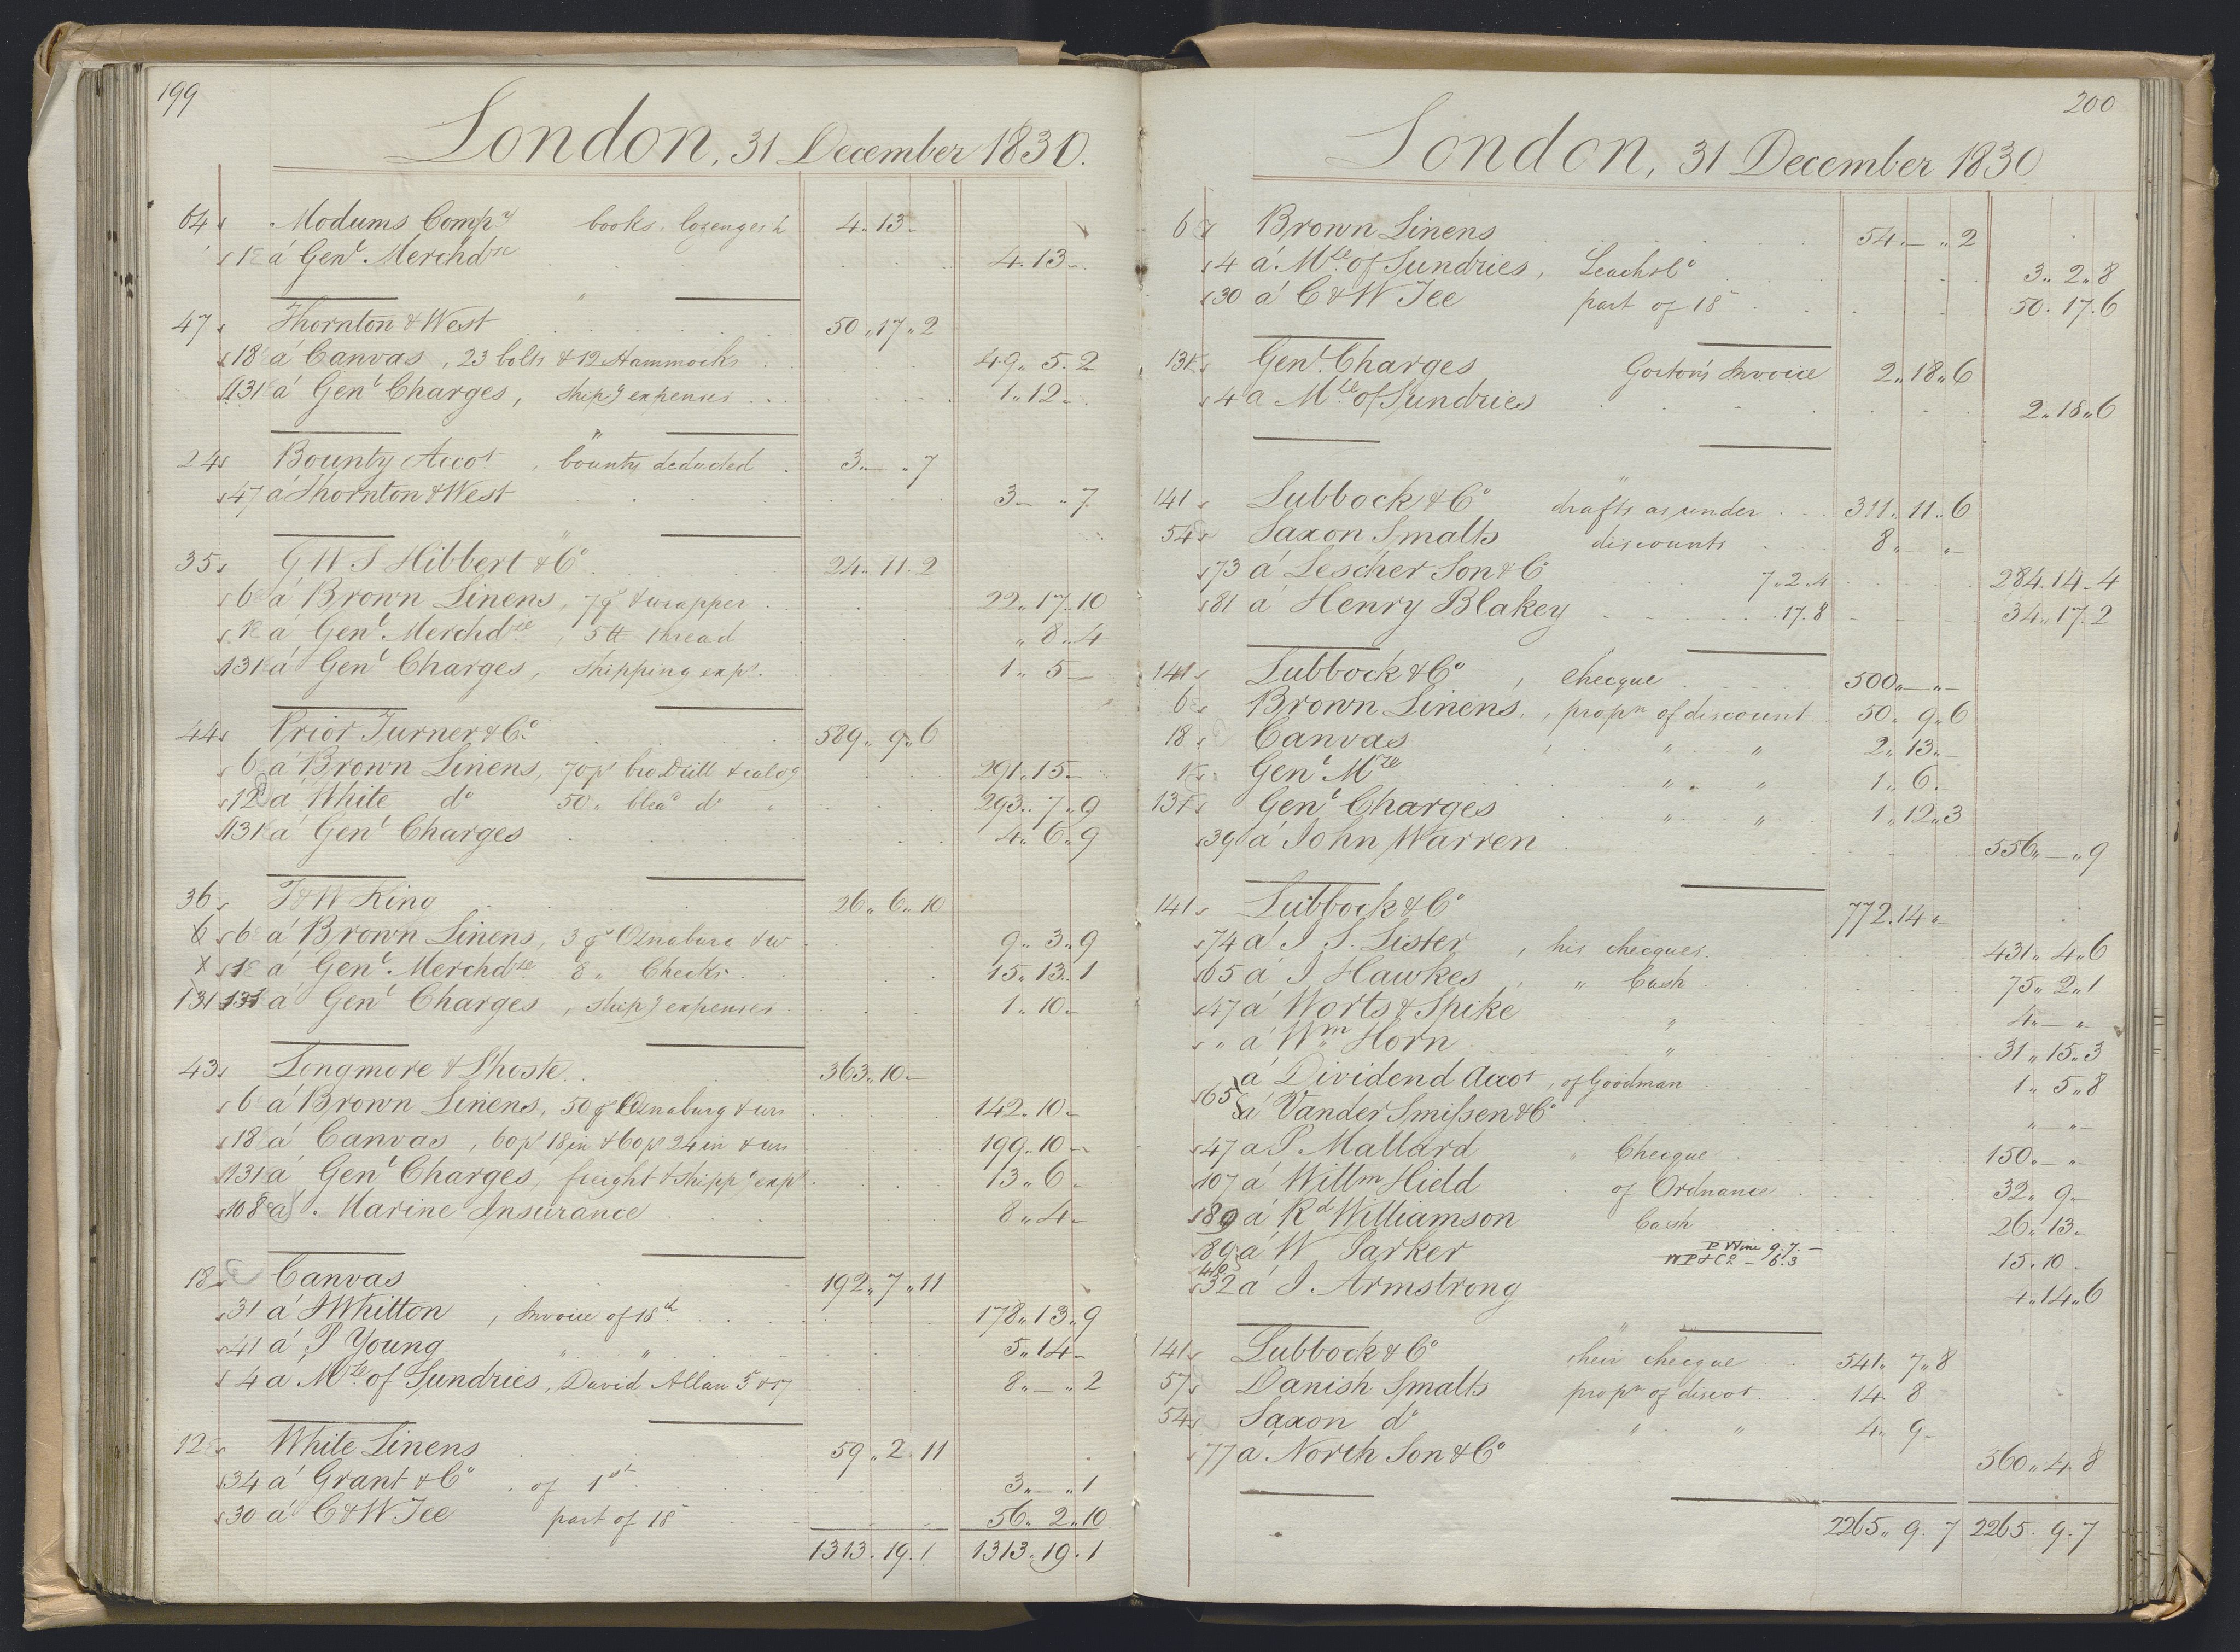 199
London, 31 December 1830.
64 Modums Compy books, lozenges &c 4„13„
1 á Genl Merchdze 4„13„
47 Thornton & West 50„17„2
18 á Canvas, 23 bolts & 12 Hammocks 49„5„2
131 á Genl Charges, shipg expenses 1„12„
24 Bounty Accot, bounty deducted 3„—„7
47 á Thornton & West 3„—„7
35 G W S Hibbert & Co 24„11„2
6 á Brown Linens, 7 ps & wrapper 22„17„10
1 á Genl Merchdze, 5 lb thread „8„4
131 á Genl Charges, shipping exps 1„5—
44 Prior Turner & Co 589„9„6
6 á Brown Linens, 70 ps bro Drill & 291„15—
12 á White do 50 „ blead do 293„7„9
131 á Genl Charges 4„6„9
36 T & W King 26„6„10
6 6 á Brown Linens, 3 ps Oznaburg & w 9„3„9
X 1 á Genl Merchdze 8 „ Checks 15„13„1
131 131 á Genl Charges, shipg expenses 1„10„
43 Longmore & L'hoste 363„10„
6 á Brown Linens, 50 ps Oznaburg & wrs 142„10„
18 á Canvas, 60 ps 18 in & 60 ps 24 in & wrs 199„10„
131 á Genl Charges, freight & shippg exps 13„6„
108 á Marine Insurance 8„4„
18 Canvas 192„7„11
31 á J Whitton, Invoice of 18th 178„13„9
41 á P Young „ „ 5„14„
4 a Mdze of Sundries, David Allan 5 & 17 8„—„2
12 White Linens 59„2„11
34 á Grant & Co of 1st 3„—„1
30 á C & W Tee part of 18 56„2„10
1313„19„1 1313„19„1
200
London, 31 December 1830
6 Brown Linens 54„—„2
4 á Mdze of Sundries, 3„2„8
30 á C & W Tee part of 18 50„17„6
131 Genl Charges Gorton's Invoice 2„18„6
4 a Mdze of Sundries 2„18„6
141 Lubbock & Co drafts as under 311„11„6
54 Saxon Smalts discounts 8„—„—
73 á Lescher Son & Co 7„2„4 284„14„4
81 á Henry Blakey 17„8 34„17„2
141 Lubbock & Co, checque 500„—„—
6 Brown Linens, propn of discount 50„9„6
18 Canvas, „ „ 2„13„—
1 Genl Mze „ „ 1„6„
131 Genl Charges „ „ 1„12„3
39 á John Warren 556„—„9
141 Lubbock & Co 772„14„
74 á J S. Lister, his checques 431„4„6
65 á J Hawkes, „ Cash 75„2„1
47 á Worts & Spike „ 4„—„—
„ á Wm Horn „ 31„15„3
65 á Dividend Accot, of Goodman 1„5„8
á VanderSmissen & Co „—„—
47 a P Mallard „ Checque 150„—„—
107 á Willm Hield of Ordnance 32„9„
189 á Rd Williamson Cash 26„13„
89 á W Parker P Wine 9.7.— WP & Co — 6.3 15„10„
32 á J. Armstrong 4„14„6
141 Lubbock & Co their checque 541„7„8
57 Danish Smalts propn of discot 14„8
54 Saxon do „ „ 4„9„
77 a North Son & Co 560„4„8
2265„9„7 2265„9„7